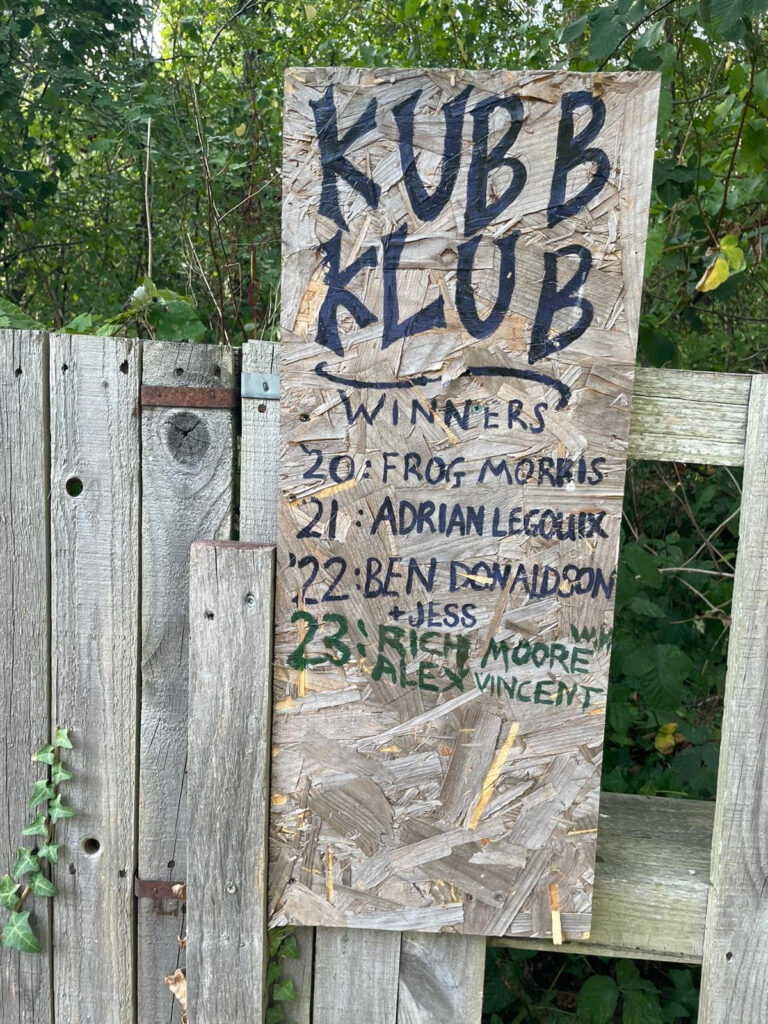 KUBB
KLUB
WINNERS
'20: FROG MORRIS
'21: ADRIAN LEGOUIX
'22: BEN DONALDSON
+ JESS
23: RICH MOORE
ALEX VINCENT